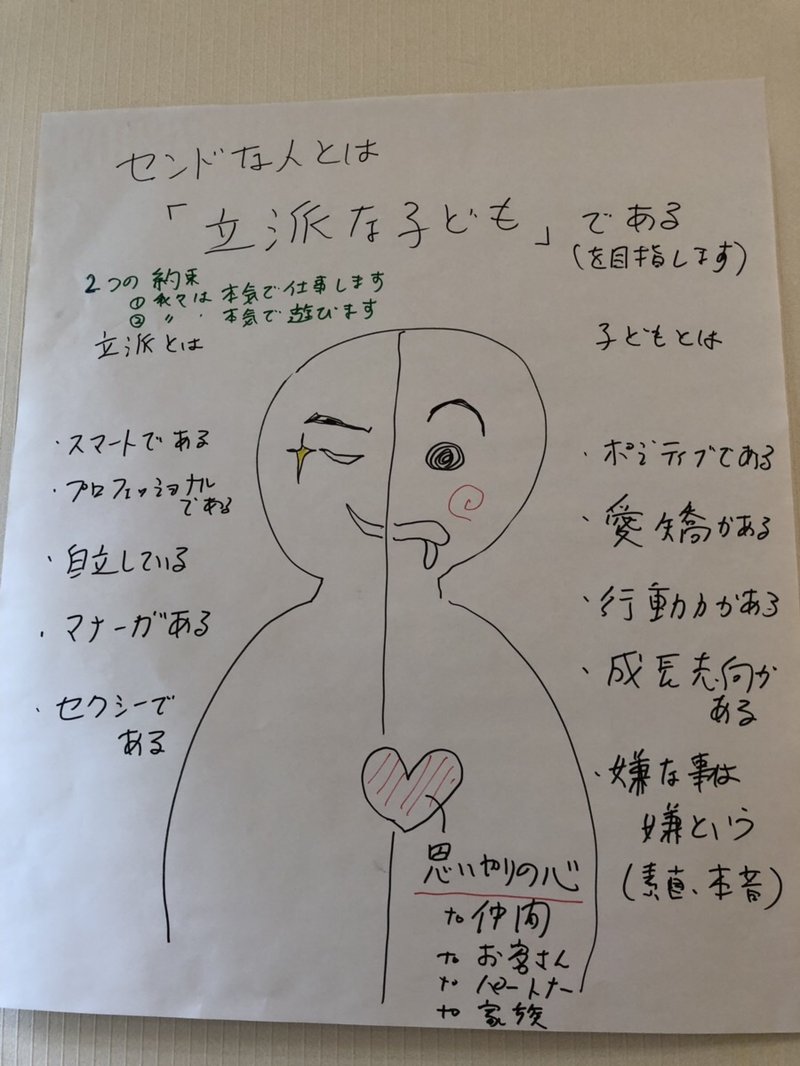 センドな人とは
「立派な子ども」である
(を目指します)
2つの約束
① 我々は 本気で仕事します
② 〃 、 本気で遊びます
立派とは
・スマートである
・プロフェッショナル
である
・自立している
・マナーがある
・セクシーで
ある
子どもとは
・ポジティブである
・愛嬌がある
・行動力がある
・成長志向が
ある
・嫌な事は
嫌という
(素直、本音)
思いやりの心
to 仲間
to お客さん
to パートナー
to 家族